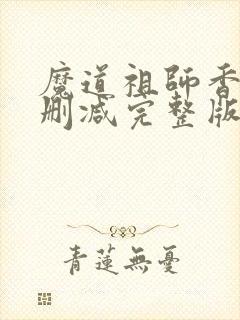 魔道祖師香
刪減完整版
青蓮無憂